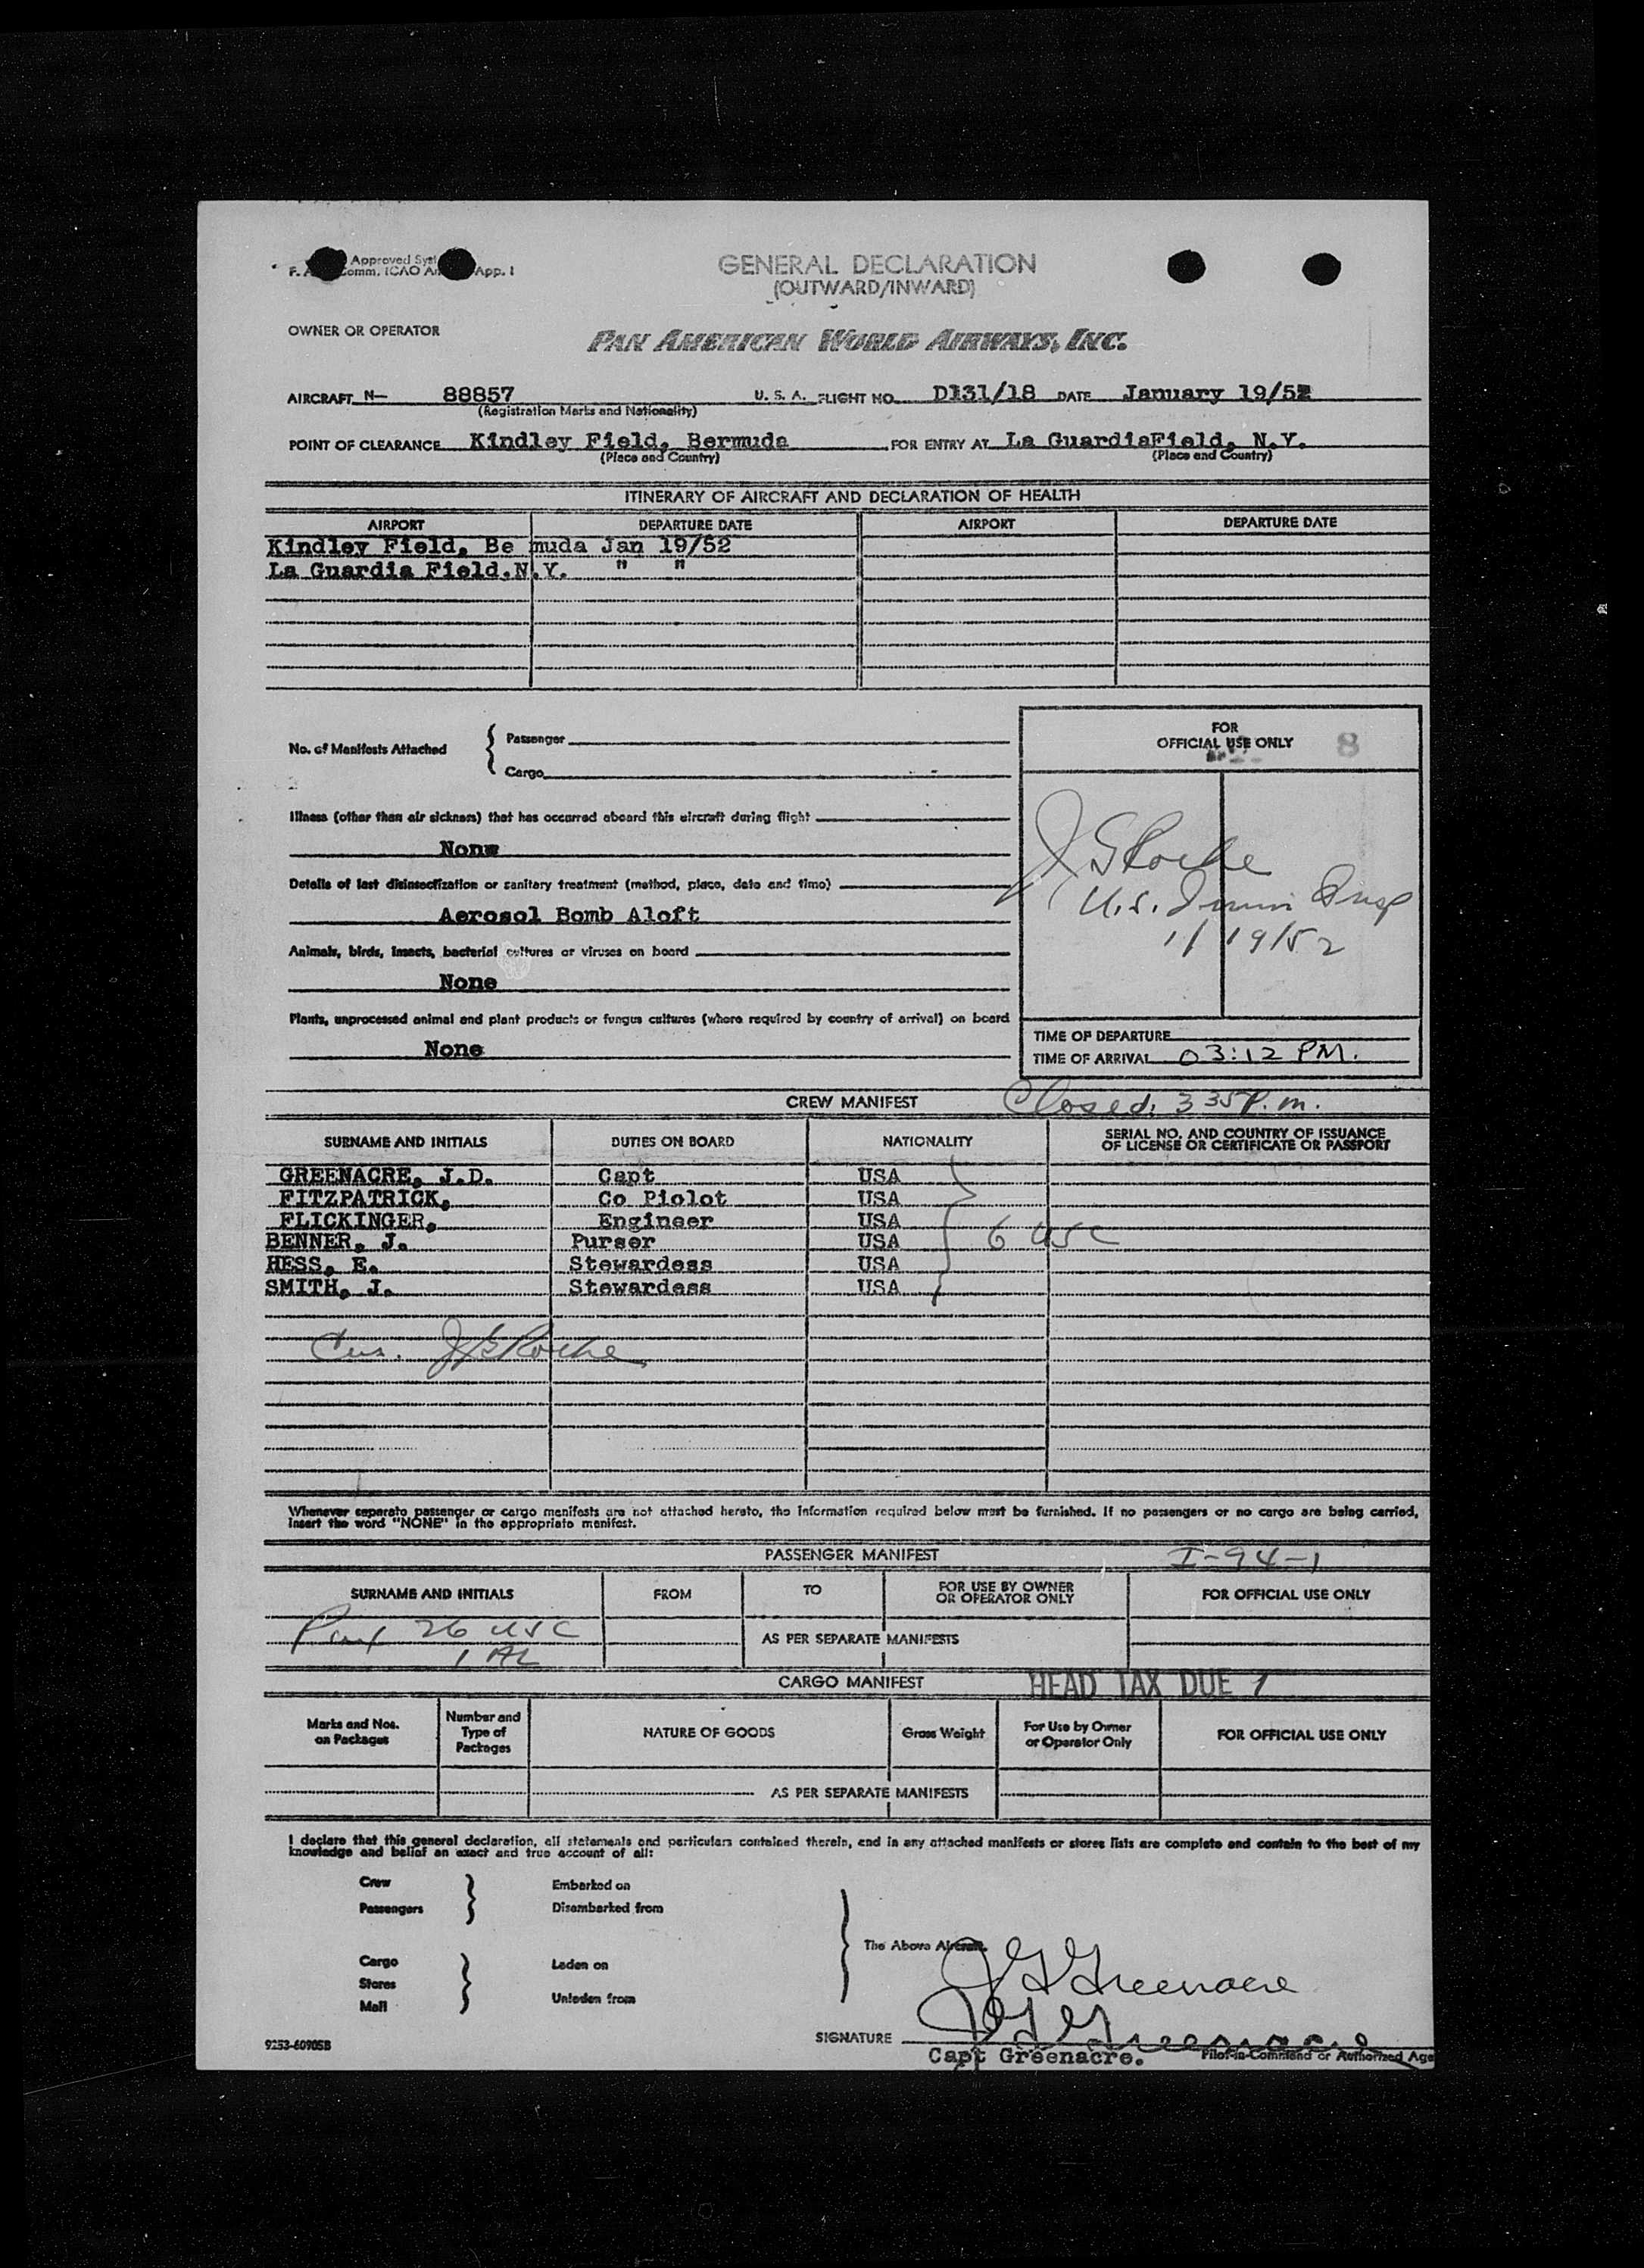 Approved Syst
F. A Comm. ICAO An App. I
GENERAL DECLARATION
(OUTWARD/INWARD)
OWNER OR OPERATOR PAN AMERICAN WORLD AIRWAYS, INC.
AIRCRAFT N- 88857 U. S. A. FLIGHT NO. D131/18 DATE January 19/52
(Registration Marks and Nationality)
POINT OF CLEARANCE Kindley Field, Bermuda FOR ENTRY AT La GuardiaField, N.Y.
(Place and Country) (Place and Country)
ITINERARY OF AIRCRAFT AND DECLARATION OF HEALTH
AIRPORT DEPARTURE DATE AIRPORT DEPARTURE DATE
Kindley Field, Be muda Jan 19/52
La Guardia Field.N.Y. " "
No. of Manifests Attached { Passenger
Cargo
FOR
OFFICIAL USE ONLY 8
Illness (other than air sickness) that has occurred aboard this aircraft during flight
None
Details of last disinsectization or sanitary treatment (method, place, date and time)
Aerosol Bomb Aloft
Animals, birds, insects, bacterial cultures or viruses on board
None
Plants, unprocessed animal and plant products or fungus cultures (where required by country of arrival) on board
None
J G Roche
U.S. Immn Insp
1/19/52
TIME OF DEPARTURE
TIME OF ARRIVAL 03:12 PM.
CREW MANIFEST Closed: 3 35 P. m.
SURNAME AND INITIALS DUTIES ON BOARD NATIONALITY SERIAL NO. AND COUNTRY OF ISSUANCE
OF LICENSE OR CERTIFICATE OR PASSPORT
GREENACRE, J.D. Capt USA
FITZPATRICK, Co Piolot USA
FLICKINGER, Engineer USA
BENNER, J. Purser USA 6 USC
HESS, E. Stewardess USA
SMITH, J. Stewardess USA
Cus. J G Roche
Whenever separate passenger or cargo manifests are not attached hereto, the information required below must be furnished. If no passengers or no cargo are being carried,
insert the word "NONE" in the appropriate manifest.
PASSENGER MANIFEST I-94-1
SURNAME AND INITIALS FROM TO FOR USE BY OWNER
OR OPERATOR ONLY FOR OFFICIAL USE ONLY
Pax 26 USC
1 AL
AS PER SEPARATE MANIFESTS
CARGO MANIFEST HEAD TAX DUE 1
Marks and Nos.
on Packages Number and
Type of
Packages NATURE OF GOODS Gross Weight For Use by Owner
or Operator Only FOR OFFICIAL USE ONLY
AS PER SEPARATE MANIFESTS
I declare that this general declaration, all statements and particulars contained therein, and in any attached manifests or stores lists are complete and contain to the best of my
knowledge and belief an exact and true account of all:
Crew Embarked on
Passengers Disembarked from
The Above Aircraft.
Cargo Laden on
Stores
Mail Unladen from
J G Greenacre
SIGNATURE J G Greenacre
Capt Greenacre. Pilot-in-Command or Authorized Age
9253-60905B